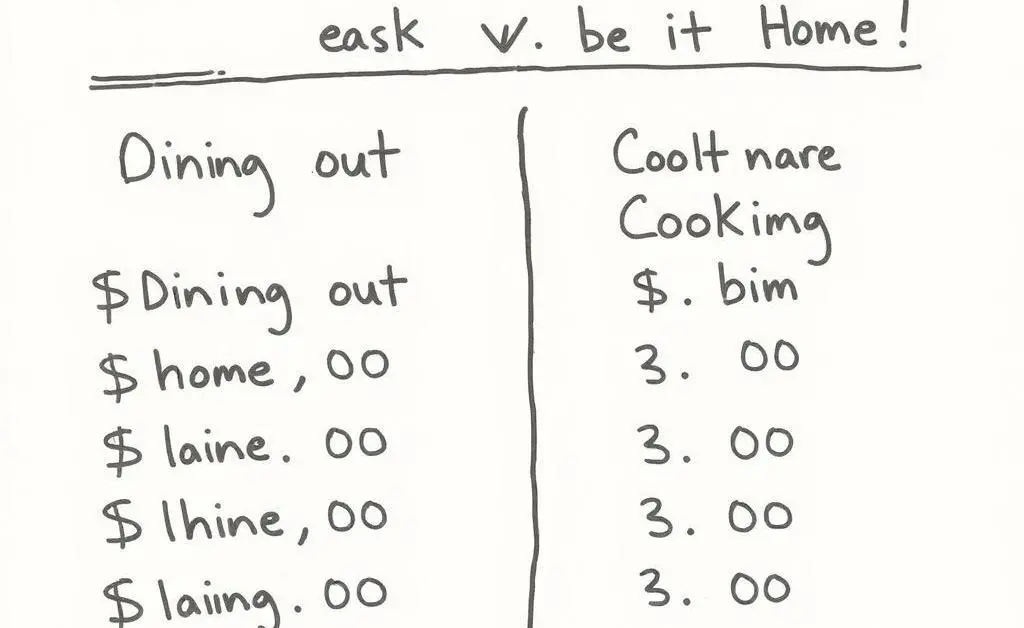 eask V. be it Home!
Dining out
$ Dining out
$ home, 00
$ laine. 00
$ lhine, 00
$ laiing. 00
Coolt nare
Cookimg
$. bim
3. 00
3. 00
3. 00
3. 00